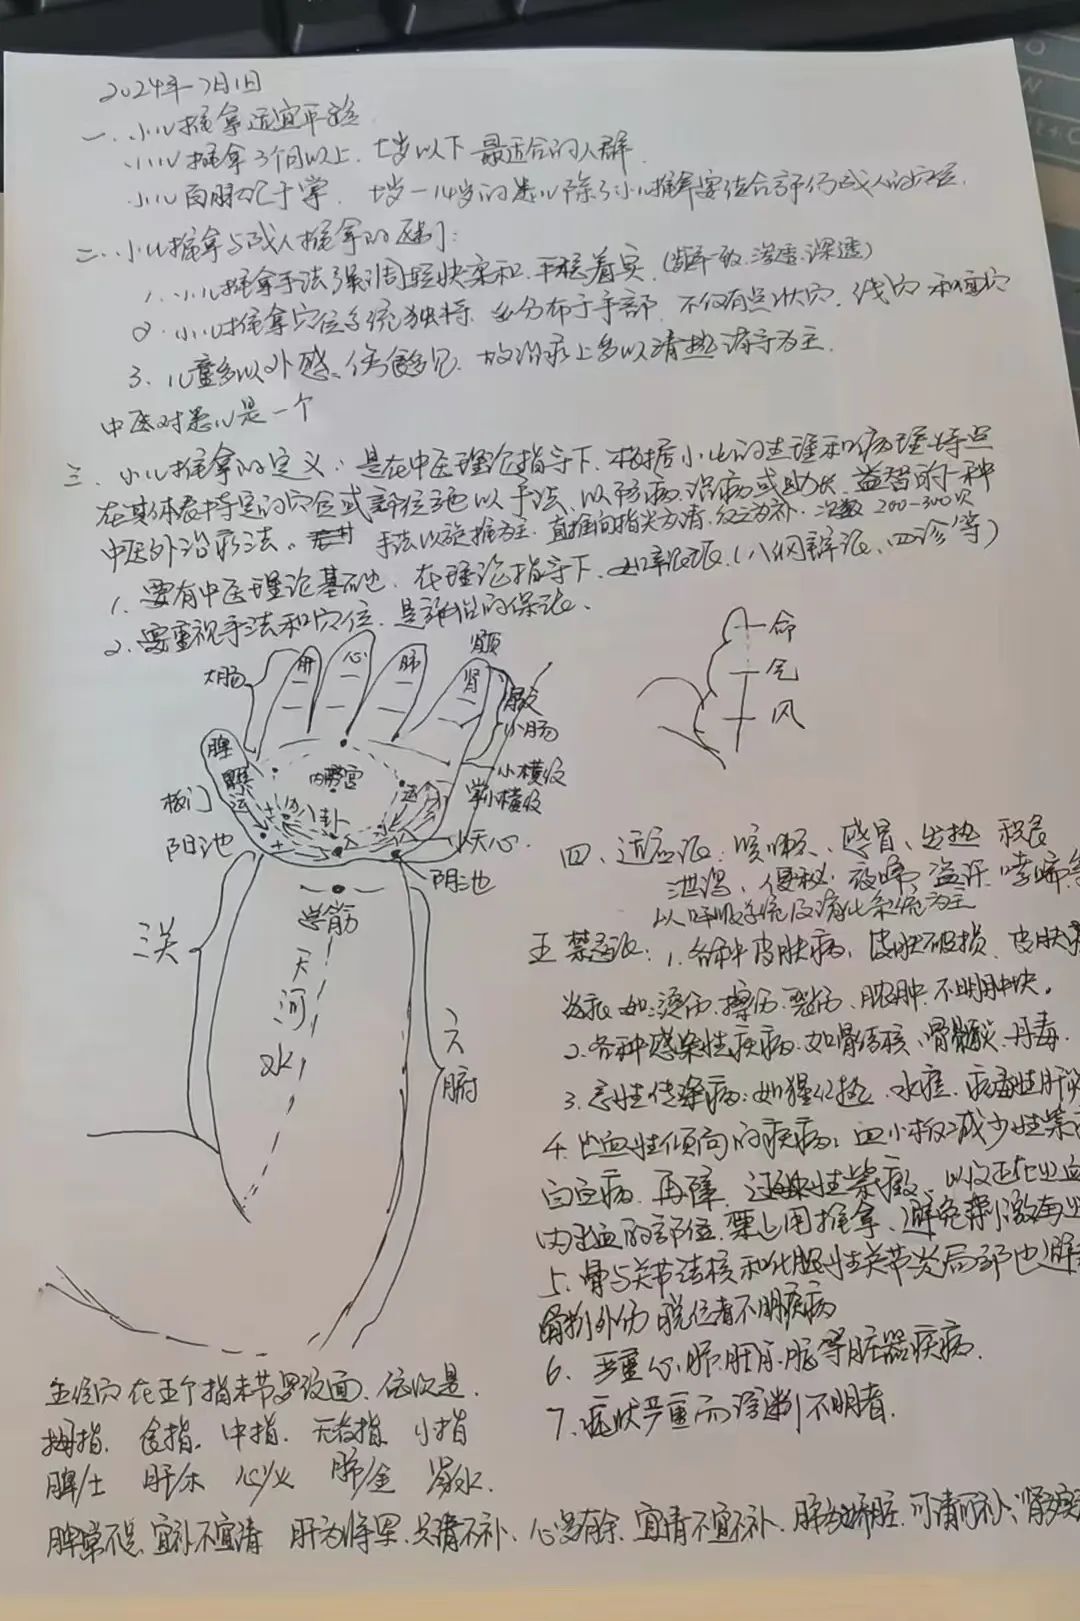 2024年7月1日
一、小儿推拿适宜年龄
小儿推拿3个月以上、七岁以下最适合的人群
小儿百脉汇于掌、七岁—14岁的患儿除了小儿推拿要结合部份成人的穴位.
二、小儿推拿与成人推拿的区别:
1. 小儿推拿手法强调轻快柔和、平稳着实(渗透、深透)
2. 小儿推拿穴位系统独特、多分布于手部、不仅有点状穴、线穴和面穴
3、儿童多以外感、伤食多见、故治疗上多以清热消导为主.
中医对患儿是一个
三、小儿推拿的定义:是在中医理论指导下、根据小儿的生理和病理特点
在其体表特定的穴位或部位施以手法、以防病、治病或助长、益智的一种
中医外治疗法。手法以旋推为主、直推向指尖为清、反之为补、次数200-300次
1、要有中医理论基础、在理论指导下、(八纲辩证、四诊等)
2、要重视手法和穴位、是的保证、
大肠 肝 心 肺 肾 肾顶
命
气
风
肾纹
小肠
脾
内劳宫
小横纹
板门 运 八卦 运 掌小横纹
阳池 小天心
阴池
三关 总筋
天河水
六腑
四、适应证:咳嗽、感冒、发热 积食
泄泻、便秘、夜啼、盗汗、哮喘等
以呼吸系统及消化系统为主
五 禁忌证:1、各种皮肤病、皮肤破损、皮肤
如:烫伤、擦伤、裂伤、脓肿、不明肿块。
2、各种感染性疾病、如骨结核、骨髓炎、丹毒.
3、急性传染病:如猩红热、水痘、病毒性肝炎
4、出血性倾向的疾病:血小板减少性紫
白血病、再障、过敏性紫癜、以及正在出血
内出血的部位、禁止用推拿、避免刺激再出
5、骨与关节结核和化脓性关节炎局部也避
骨折外伤 脱位者不明疾病
6、严重心、肺、肝、肾、脑等脏器疾病.
7、症状严重而诊断不明者.
五经穴在五个指末节罗纹面、依次是.
拇指、食指、中指、无名指、小指
脾/土 肝/木 心/火 肺/金 肾/水.
脾常不足、宜补不宜清 肝为将军、只清不补、心常有余、宜清不宜补、肺为娇脏、可清可补、肾